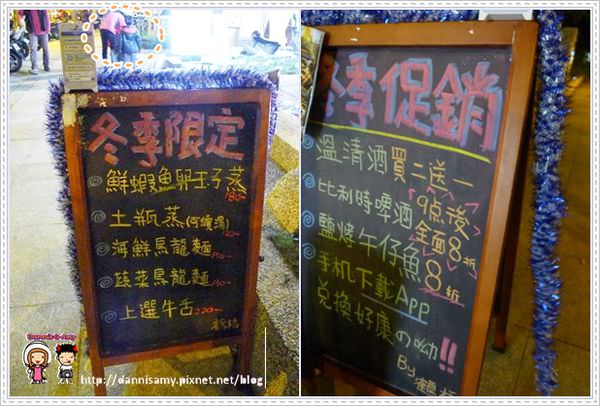 冬季限定
鮮蝦魚卵玉子蒸
180-
土瓶蒸(何首烏)
120-
海鮮烏龍麵 150-
蔬菜烏龍麵 150-
上選牛舌 220-
冬季促銷
溫清酒買二送一
比利時啤酒 9点後
全面8折
鹽烤午仔魚8折
手机下載App
兌換好康の呦!!
By 鶴橋
Dannis & Amy
http://dannisamy.pixnet.net/blog